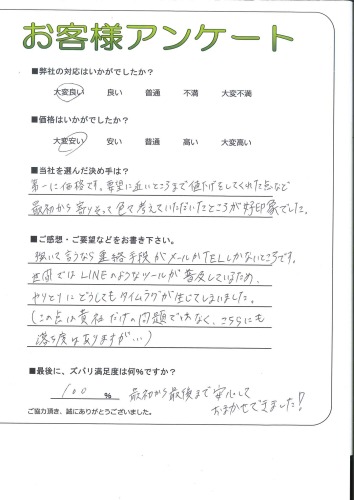 お客様アンケート
■弊社の対応はいかがでしたか？
大変良い 良い 普通 不満 大変不満
■価格はいかがでしたか？
大変安い 安い 普通 高い 大変高い
■当社を選んだ決め手は？
第一に価格です。要望に近いところまで値下げをしてくれた点など
最初から寄りそって色々考えていただいたところが好印象でした。
■ご感想・ご要望などをお書き下さい。
強いて言うなら連絡手段がメールかTELしかないところです。
世間ではLINEのようなツールが普及しているため、
やりとりにどうしてもタイムラグが生じてしまいました。
(この点は貴社だけの問題ではなく、こちらにも
落ち度はありますが…)
■最後に、ズバリ満足度は何%ですか？
100 % 最初から最後まで安心して
おまかせできました！
ご協力頂き、誠にありがとうございました。